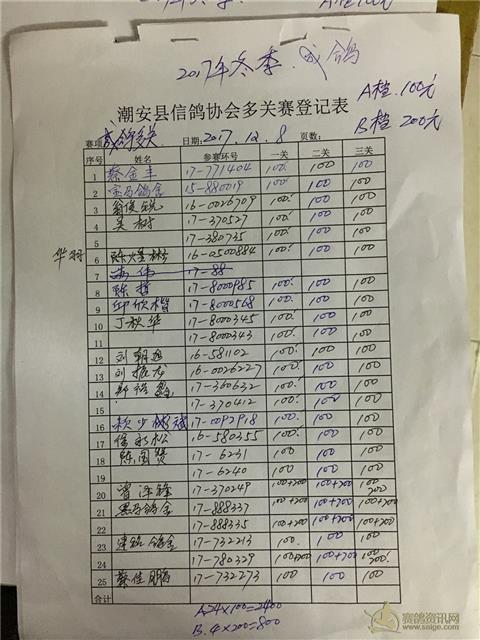 2017年冬季.成鸽
潮安县信鸽协会多关赛登记表
A档.100元
B档 200元
赛项 成鸽多关 日期:2017.12.8 页数:
序号 姓名 参赛环号 一关 二关 三关
1 蔡金丰 17-771404 100. 100 100
2 宝马鸽舍 15-880019 100. 100 100
3 翁俊锐 16-0026709 100. 100 100
4 吴树 17-370527 100. 100 100
5 17-380735 100. 100 100
华羽 6 陈 16-0500884 100. 100 100
7 伟 17-88
8 陈哲 17-8000985 100. 100 100
9 邱欣楷 17-8000568 100. 100 100
10 丁秋华 17-8000345 100. 100 100
11 17-8000343 100 100 100
12 刘朝 16-581102 100. 100 100
13 刘振 16-0026227 100. 100 100
14 17-360632 100. 100 100
15 17-370412 100. 100 100
16 少 17-0092918 100. 100 100
17 松 16-580355 100. 100 100
18 陈国贤 17-6231 100 100 100
19 17-6240 100 100 100
20 曾泽锋 17-370249 100+200 100+200 100+200
21 黑马鸽舍 17-888337 100+200 100+200 100+200
22 17-888335 100+200 100+200 100+200
23 鸽舍 17-732213 100 100 100
24 17-780329 100+200 100+200 100+200.
25 蔡佳鹏 17-732273 100 100 100
合计
A.24×100=2400
B.4×200=800
赛鸽资讯网
www.saige.com